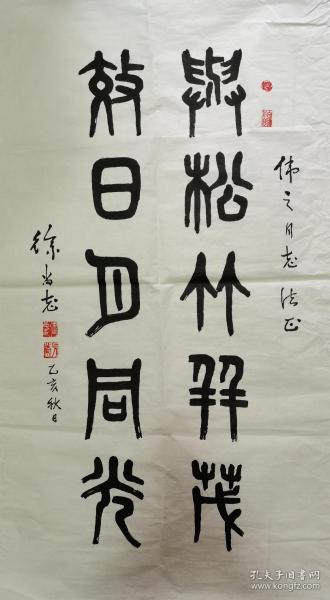 伟之同志法正
與松竹并茂
效日月同光
徐尚志
乙亥秋日
孔夫子旧书网